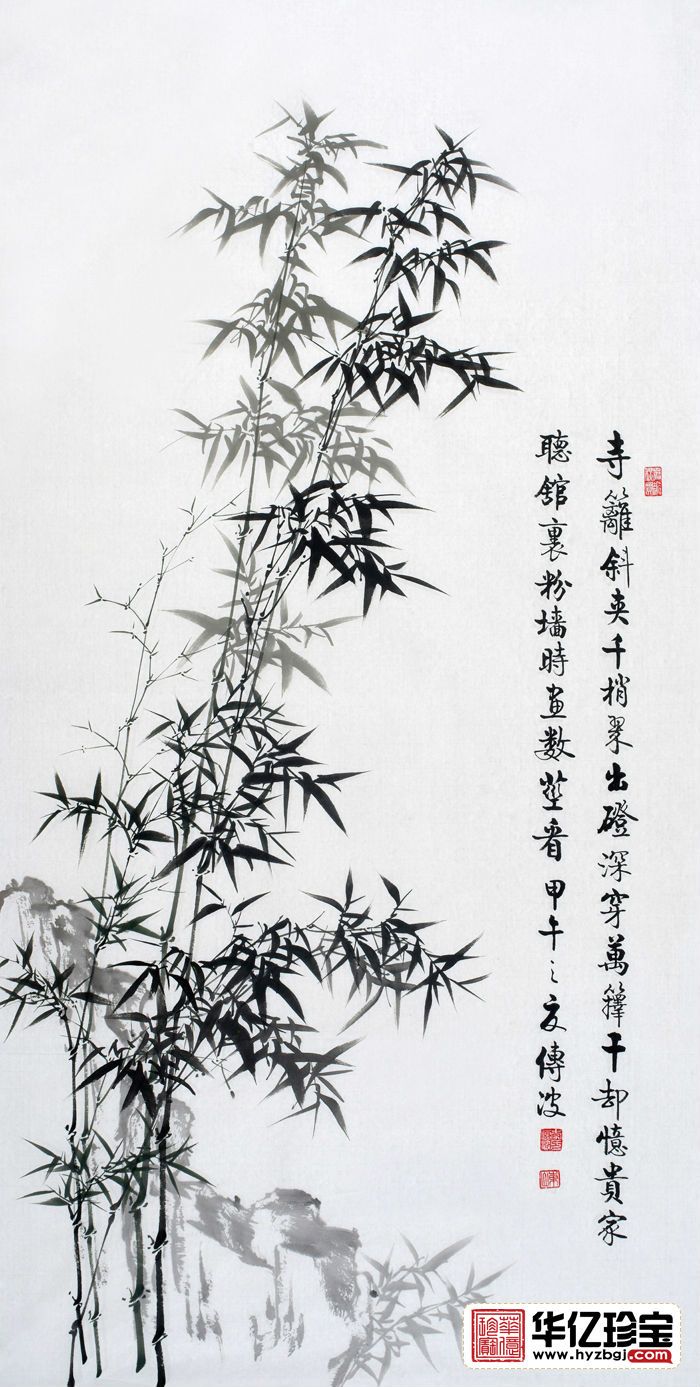 寺籬斜夹千梢翠出磴深穿萬籜干却憶貴家
聽舘裏粉墻時畫數莖看甲午之夏傳波
華億珍寶
华亿珍宝
www.hyzbgj.com